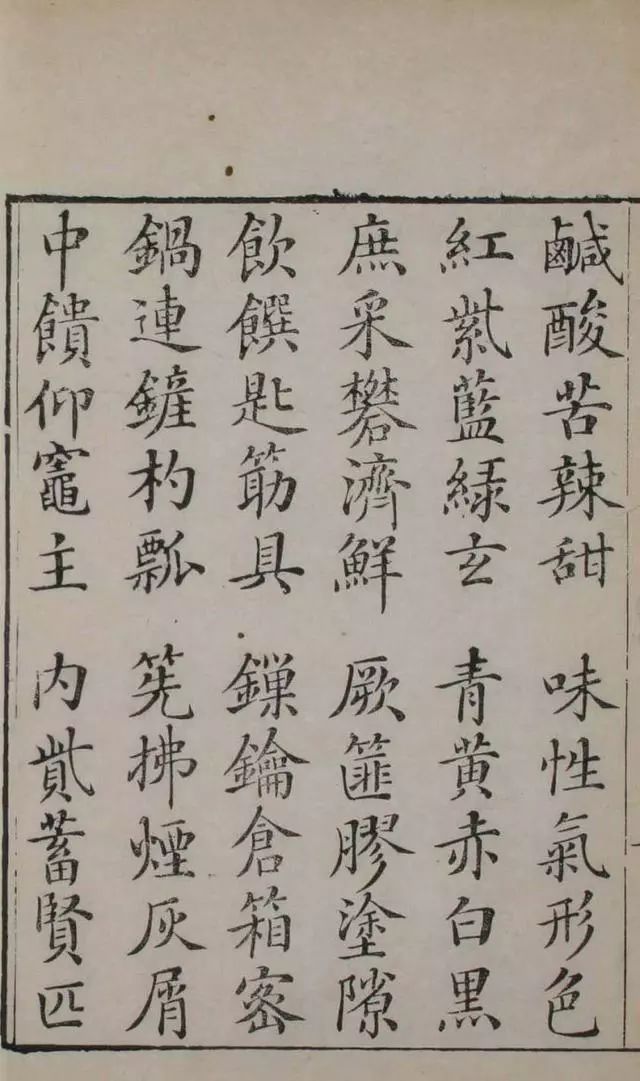 鹹酸苦辣甜 味性氣形色
紅紫藍綠玄 青黄赤白黑
庶采礬濟鮮 厥篚膠塗隙
飲饌匙筯具 鏁鑰倉箱密
鍋連鏟杓瓢 筅拂煙灰屑
中饋仰竈主 内貳蓄賢匹